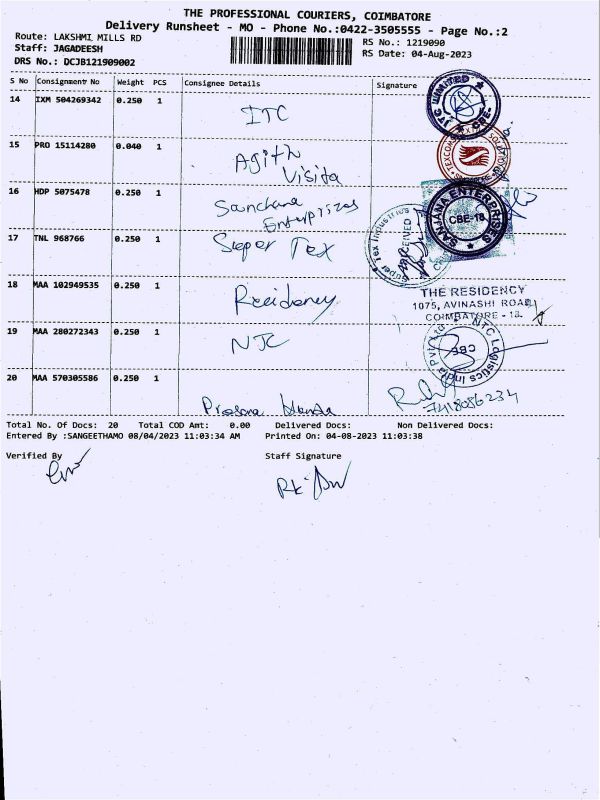 THE PROFESSIONAL COURIERS, COIMBATORE
Delivery Runsheet - MO - Phone No.:0422-3505555 - Page No.:2
Route: LAKSHMI MILLS RD
RS No.: 1219090
Staff: JAGADEESH
RS Date: 04-Aug-2023
DRS No.: DCJB121909002
S No Consignment No Weight PCS Consignee Details Signature
14 IXM 504269342 0.250 1 ITC
ITC LIMITED CBE
15 PRO 15114280 0.040 1 Agith
Visita
16 HDP 5075478 0.250 1 Sanchana
Enterprizes
SANJANA ENTERPRISES
CBE-18
17 TNL 968766 0.250 1 Super Tex
Super Tex Industries
RECEIVED
18 MAA 102949535 0.250 1 Residency
THE RESIDENCY
1075, AVINASHI ROAD
COIMBATORE - 18.
19 MAA 280272343 0.250 1 NTC
NTC Logistics India Pvt Ltd
CBE
20 MAA 570305586 0.250 1
7418086234
Total No. Of Docs: 20 Total COD Amt: 0.00 Delivered Docs: Non Delivered Docs:
Entered By :SANGEETHAMO 08/04/2023 11:03:34 AM Printed On: 04-08-2023 11:03:38
Verified By Staff Signature